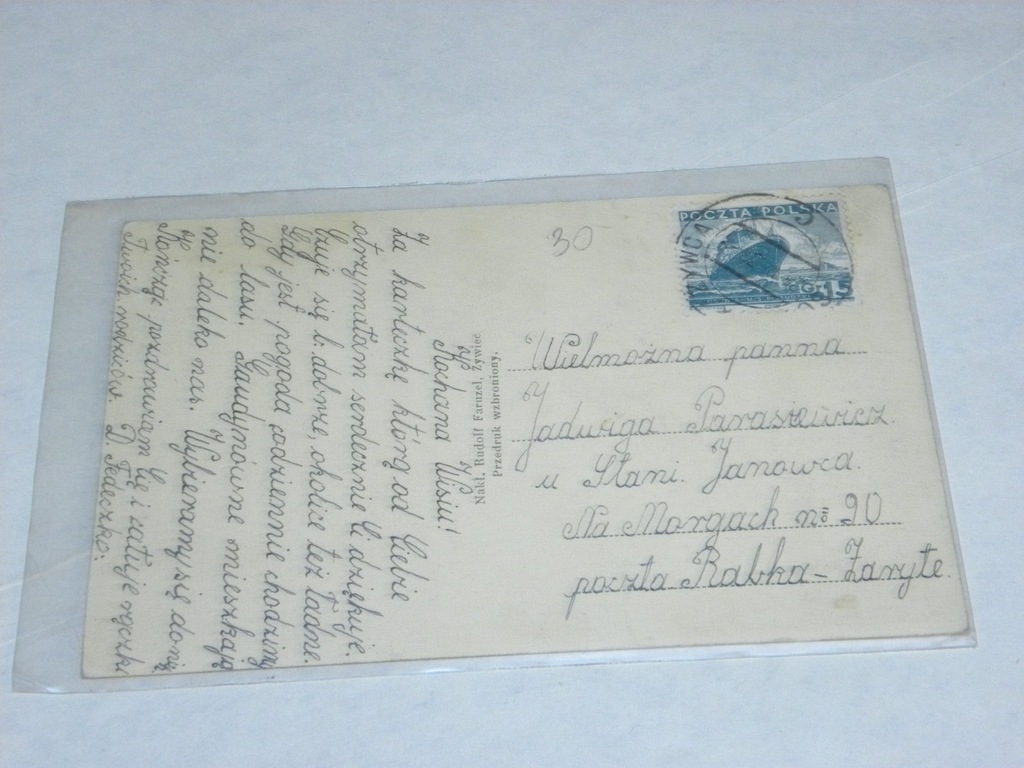 Kochana Wisiu!
Za karteczkę którą od Ciebie
otrzymałam serdecznie Ci dziękuję.
Czuję się b. dobrze, okolice też ładne.
Gdy jest pogoda codziennie chodzimy
do lasu. Gaudynówne mieszkają
nie daleko nas. Wybieramy się do nich
Kończąc pozdrawiam Cię i całuję rączki
Twoich rodziców. D.
Nakł. Rudolf Faruzel, Żywiec
Przedruk wzbroniony.
30
POCZTA POLSKA
GR 15
ŻYWCA
Wielmożna panna
Jadwiga Parasiewicz
u Stani. Janowca.
Na Morgach nº 90
poczta Rabka-Zaryte